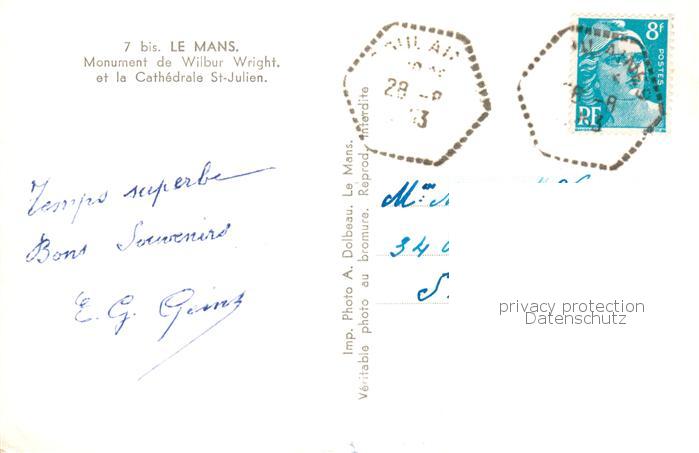 7 bis. LE MANS.
Monument de Wilbur Wright.
et la Cathédrale St-Julien.
28 -8
8f
POSTES
RF
Temps superbe
Bons Souvenirs
E. G.
Imp. Photo A. Dolbeau. Le Mans.
Véritable photo au bromure. Reprod. Interdite
Mme
34
S.
privacy protection
Datenschutz